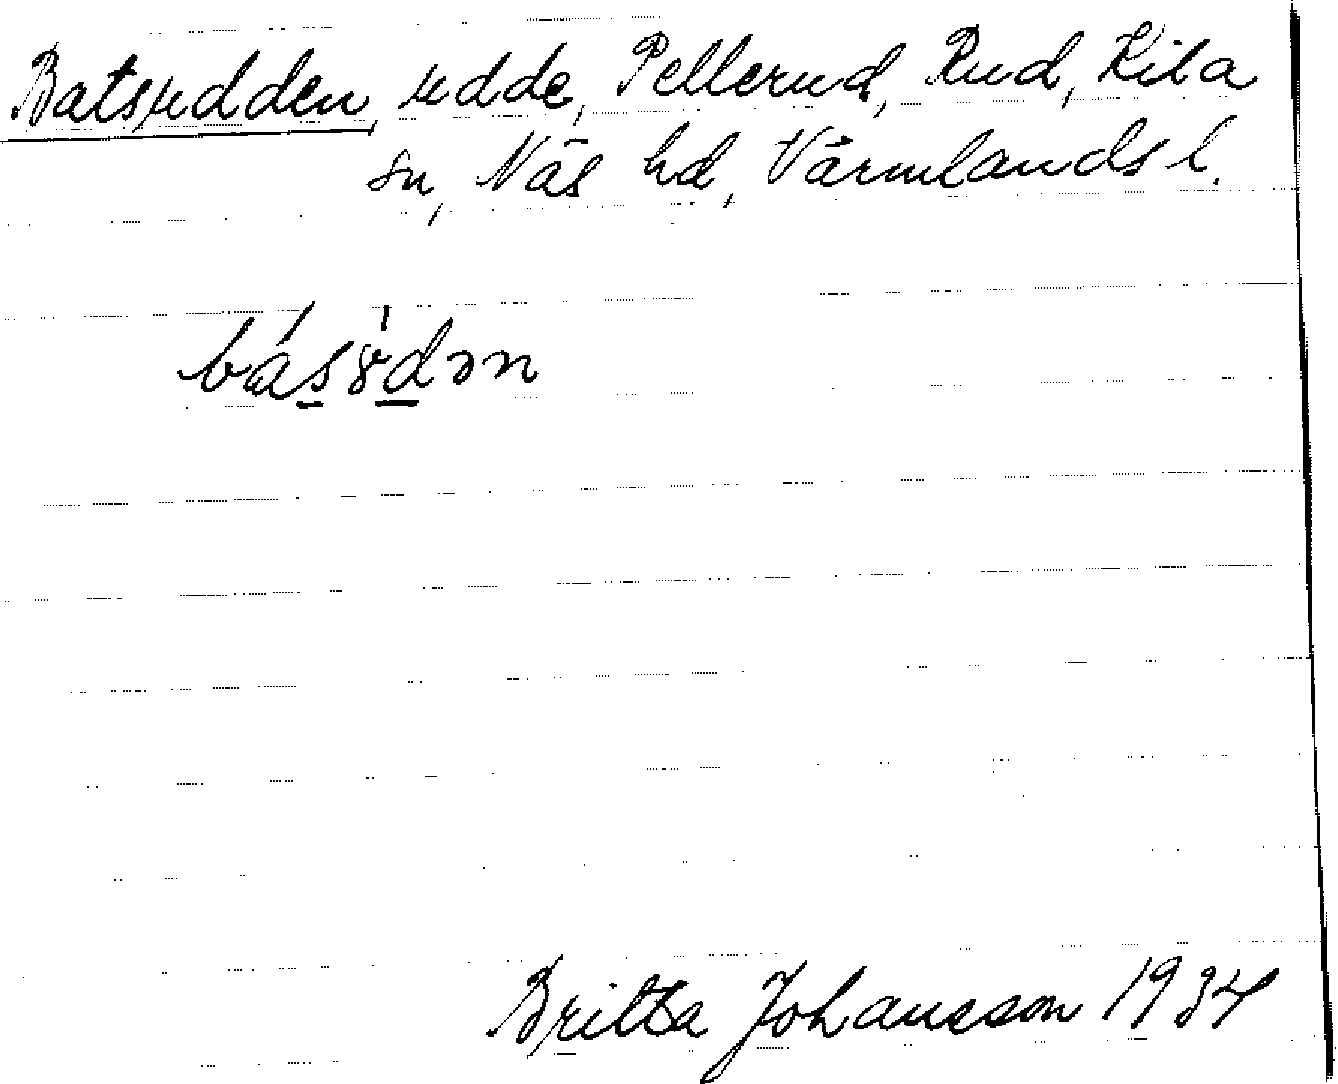 Batsudden, udde, Pellerud, Rud, Kila
sn, Näs hd, Värmlands l.
Britta Johansson 1934